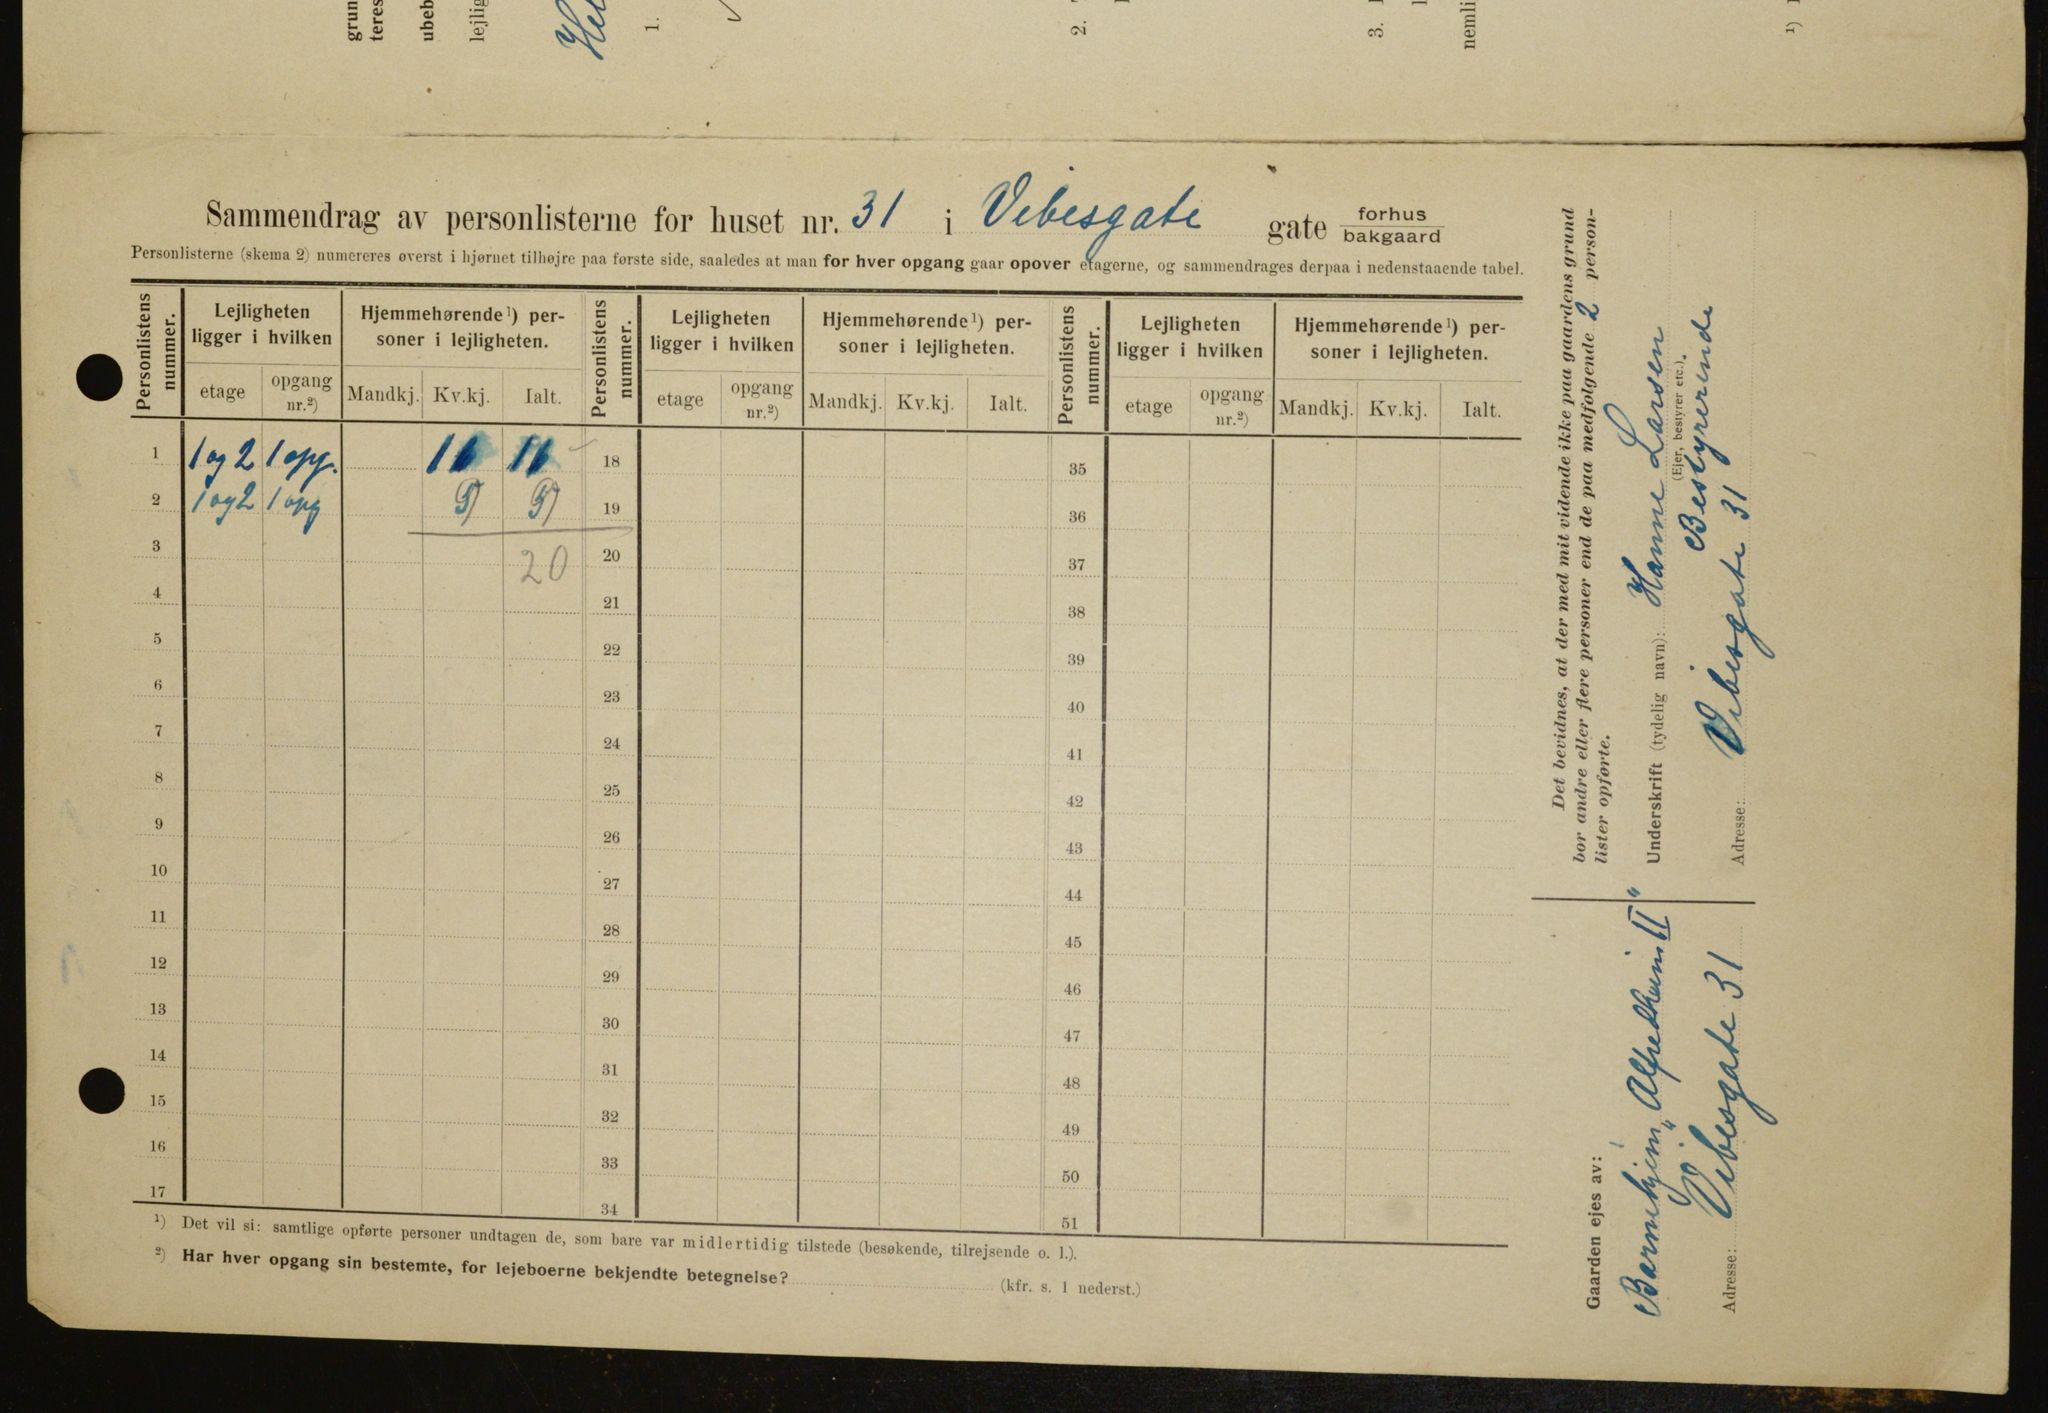 grun
teres
ubeb
lejlig
Hel
1.
2.
3.
nemli
1)
Sammendrag av personlisterne for huset nr. 31 i Vibesgate gate forhus
bakgaard
Personlisterne (skema 2) numereres øverst i hjørnet tilhøjre paa første side, saaledes at man for hver opgang gaar opover etagerne, og sammendrages derpaa i nedenstaaende tabel.
Personlistens nummer. Lejligheten ligger i hvilken Hjemmehørende ¹) personer i lejligheten. Personlistens nummer. Lejligheten ligger i hvilken Hjemmehørende ¹) personer i lejligheten. Personlistens nummer. Lejligheten ligger i hvilken Hjemmehørende ¹) personer i lejligheten.
etage opgang nr.²) Mandkj. Kv.kj. Ialt. etage opgang nr.²) Mandkj. Kv.kj. Ialt. etage opgang nr.²) Mandkj. Kv.kj. Ialt.
1 1 og 2 1 opg. 11 11 18 35
2 1 og 2 1 opg 9 9 19 36
3 20 20 37
4 21 38
5 22 39
6 23 40
7 24 41
8 25 42
9 26 43
10 27 44
11 28 45
12 29 46
13 30 47
14 31 48
15 32 49
16 33 50
17 34 51
¹) Det vil si: samtlige opførte personer undtagen de, som bare var midlertidig tilstede (besøkende, tilrejsende o. l.).
²) Har hver opgang sin bestemte, for lejeboerne bekjendte betegnelse? (kfr. s. 1 nederst.)
Det bevidnes, at der med mit vidende ikke paa gaardens grund
bor andre eller flere personer end de paa medfølgende 2 person-
lister opførte.
Underskrift (tydelig navn): Hanne Larsen
(Ejer, bestyrer etc.).
Bestyrerinde
Adresse: Vibesgate 31
Gaarden ejes av:
Barnehjem „Alfredheim II“
Adresse: Vibesgate 31